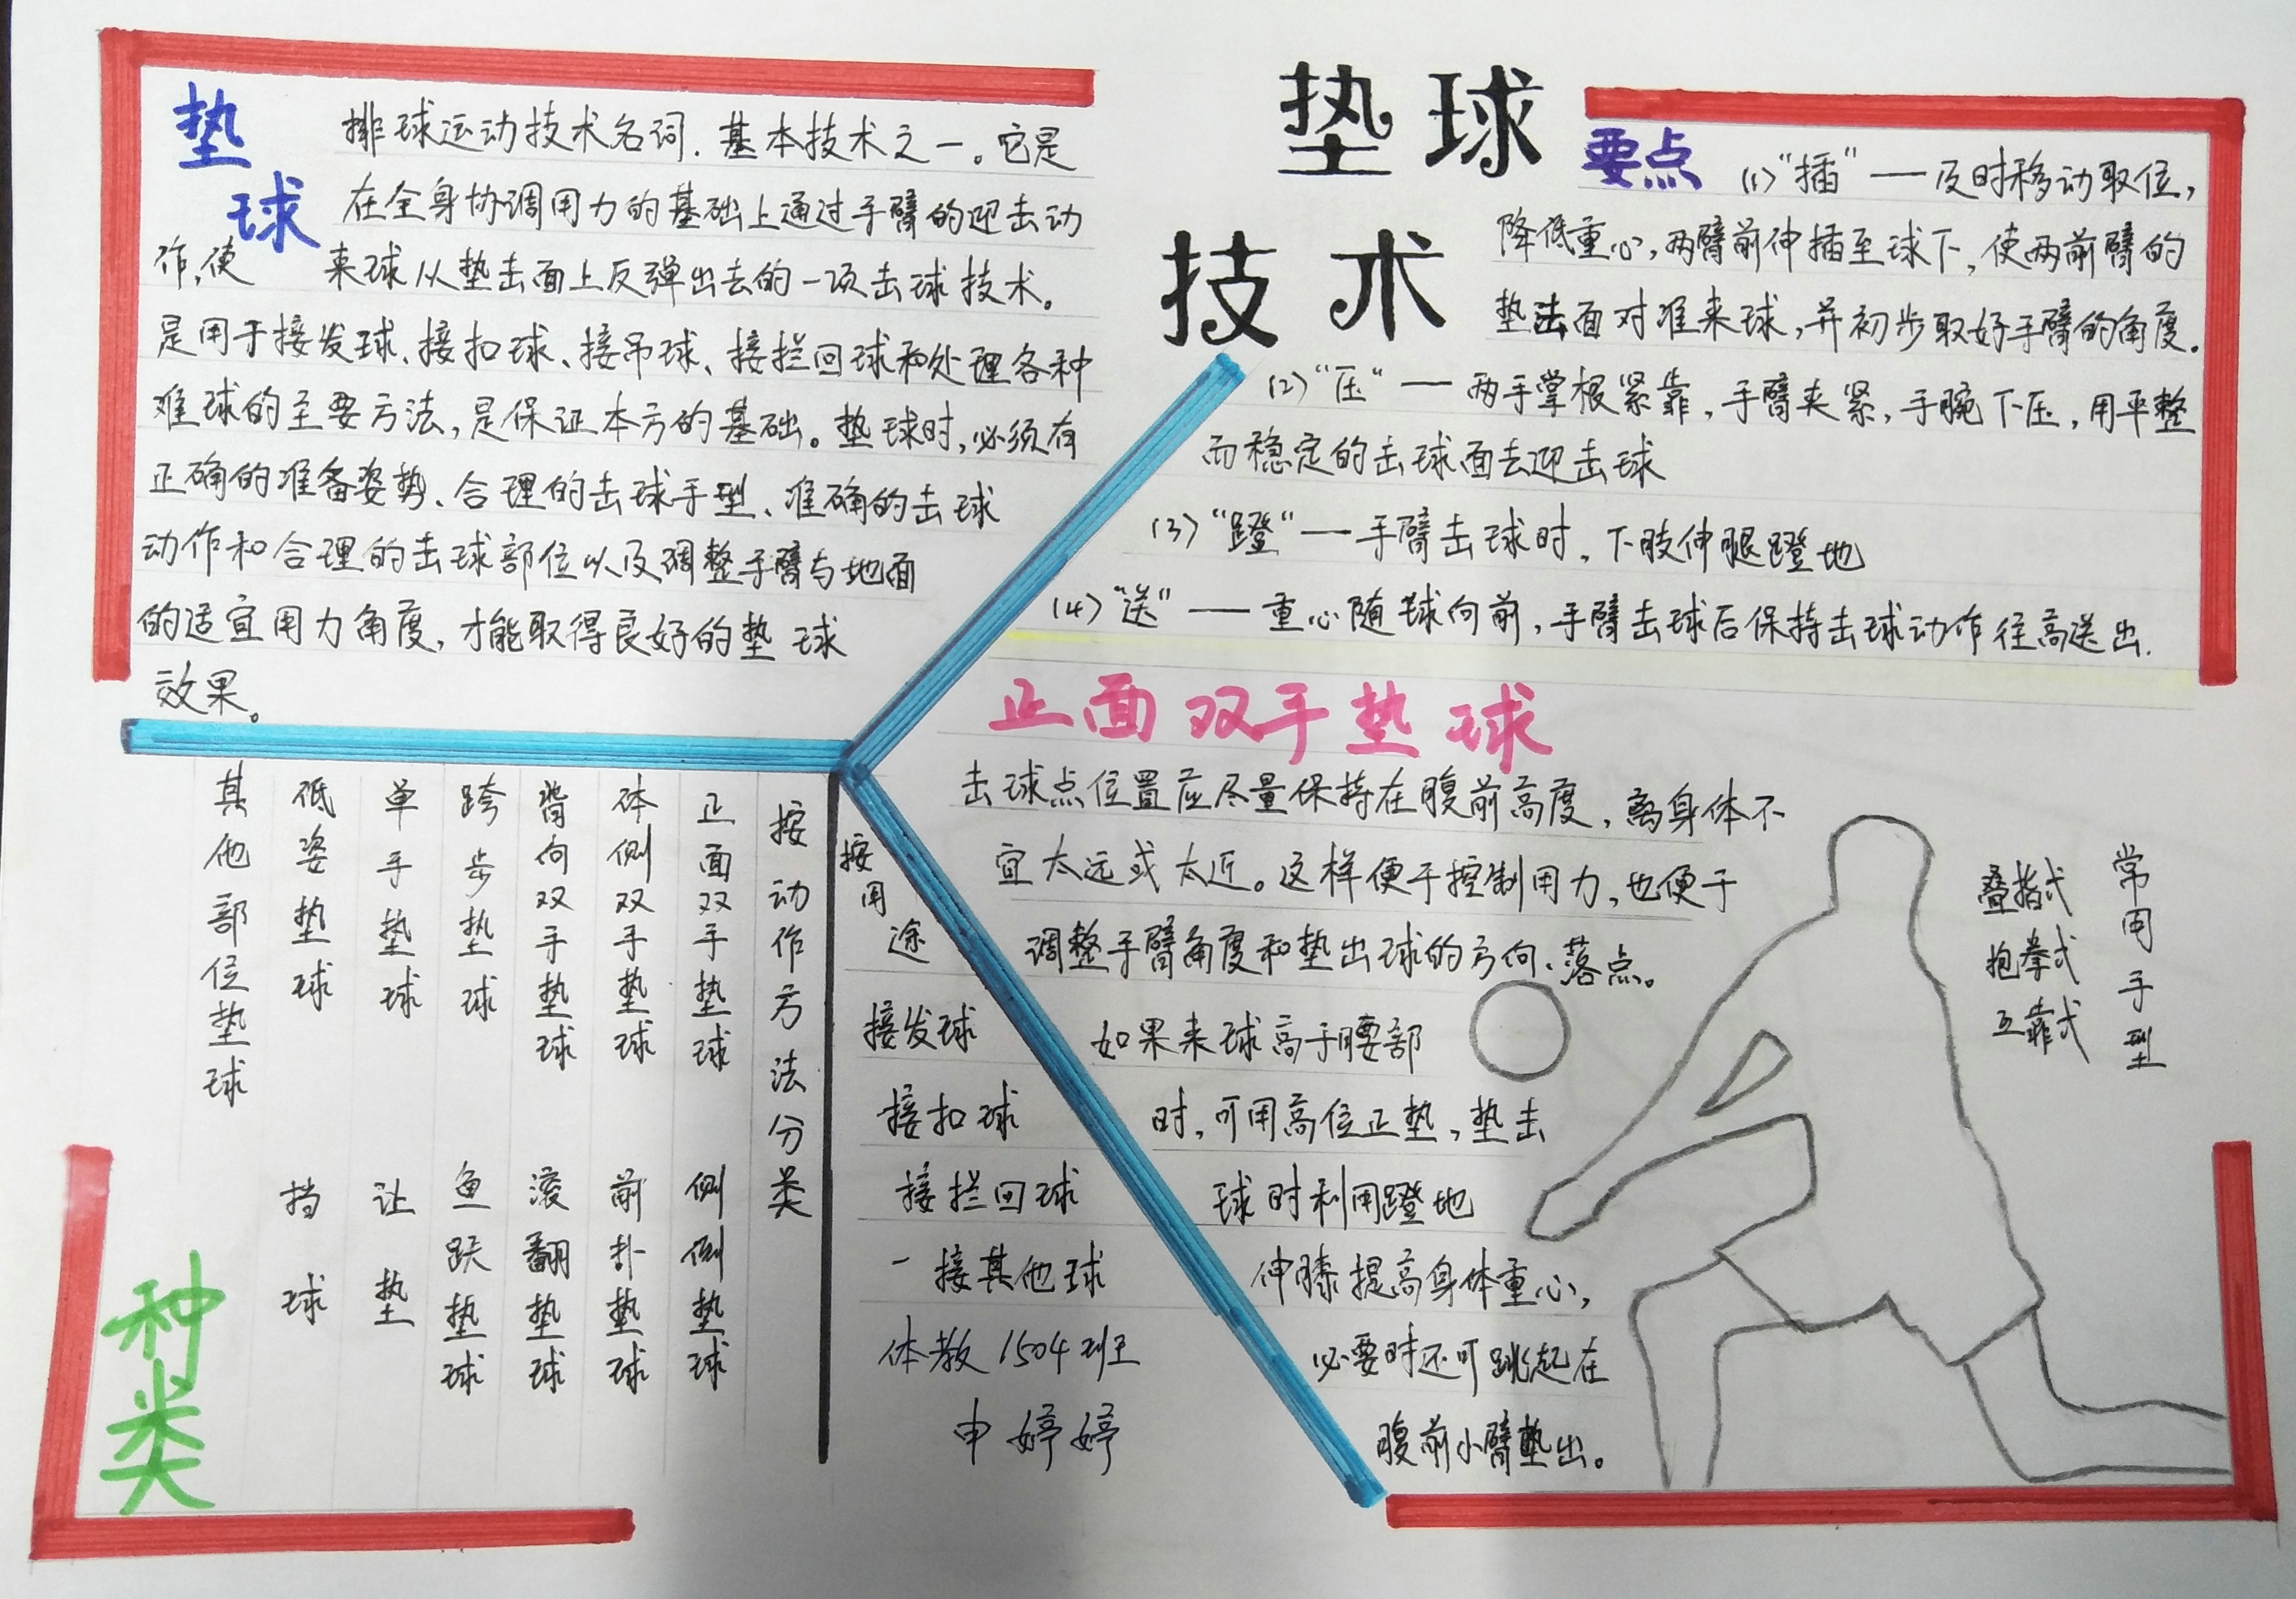 垫球
技术
垫
球
排球运动技术名词.基本技术之一。它是
在全身协调用力的基础上通过手臂的迎击动
作,使 来球从垫击面上反弹出去的一项击球技术。
是用于接发球、接扣球、接吊球、接拦回球和处理各种
难球的主要方法,是保证本方的基础。垫球时,必须有
正确的准备姿势、合理的击球手型、准确的击球
动作和合理的击球部位以及调整手臂与地面
的适宜用力角度,才能取得良好的垫球
效果。
要点
(1)“插”——及时移动取位,
降低重心,两臂前伸插至球下,使两前臂的
垫击面对准来球,并初步取好手臂的角度。
(2)“压”——两手掌根紧靠,手臂夹紧,手腕下压,用平整
而稳定的击球面去迎击球
(3)“蹬”——手臂击球时,下肢伸腿蹬地
(4)“送”——重心随球向前,手臂击球后保持击球动作往高送出.
正面双手垫球
击球点位置应尽量保持在腹前高度,离身体不
宜太远或太近。这样便于控制用力,也便于
调整手臂角度和垫出球的方向、落点。
如果来球高于腰部
时,可用高位正垫,垫击
球时利用蹬地
伸膝提高身体重心,
必要时还可跳起在
腹前小臂垫出。
常用手型
叠指式
抱拳式
互靠式
种类
按动作方法分类
正面双手垫球
体侧双手垫球
背向双手垫球
跨步垫球
单手垫球
低姿垫球
其他部位垫球
侧倒垫球
前扑垫球
滚翻垫球
鱼跃垫球
让垫
挡球
按用途
接发球
接扣球
接拦回球
接其他球
体教1504班
申婷婷